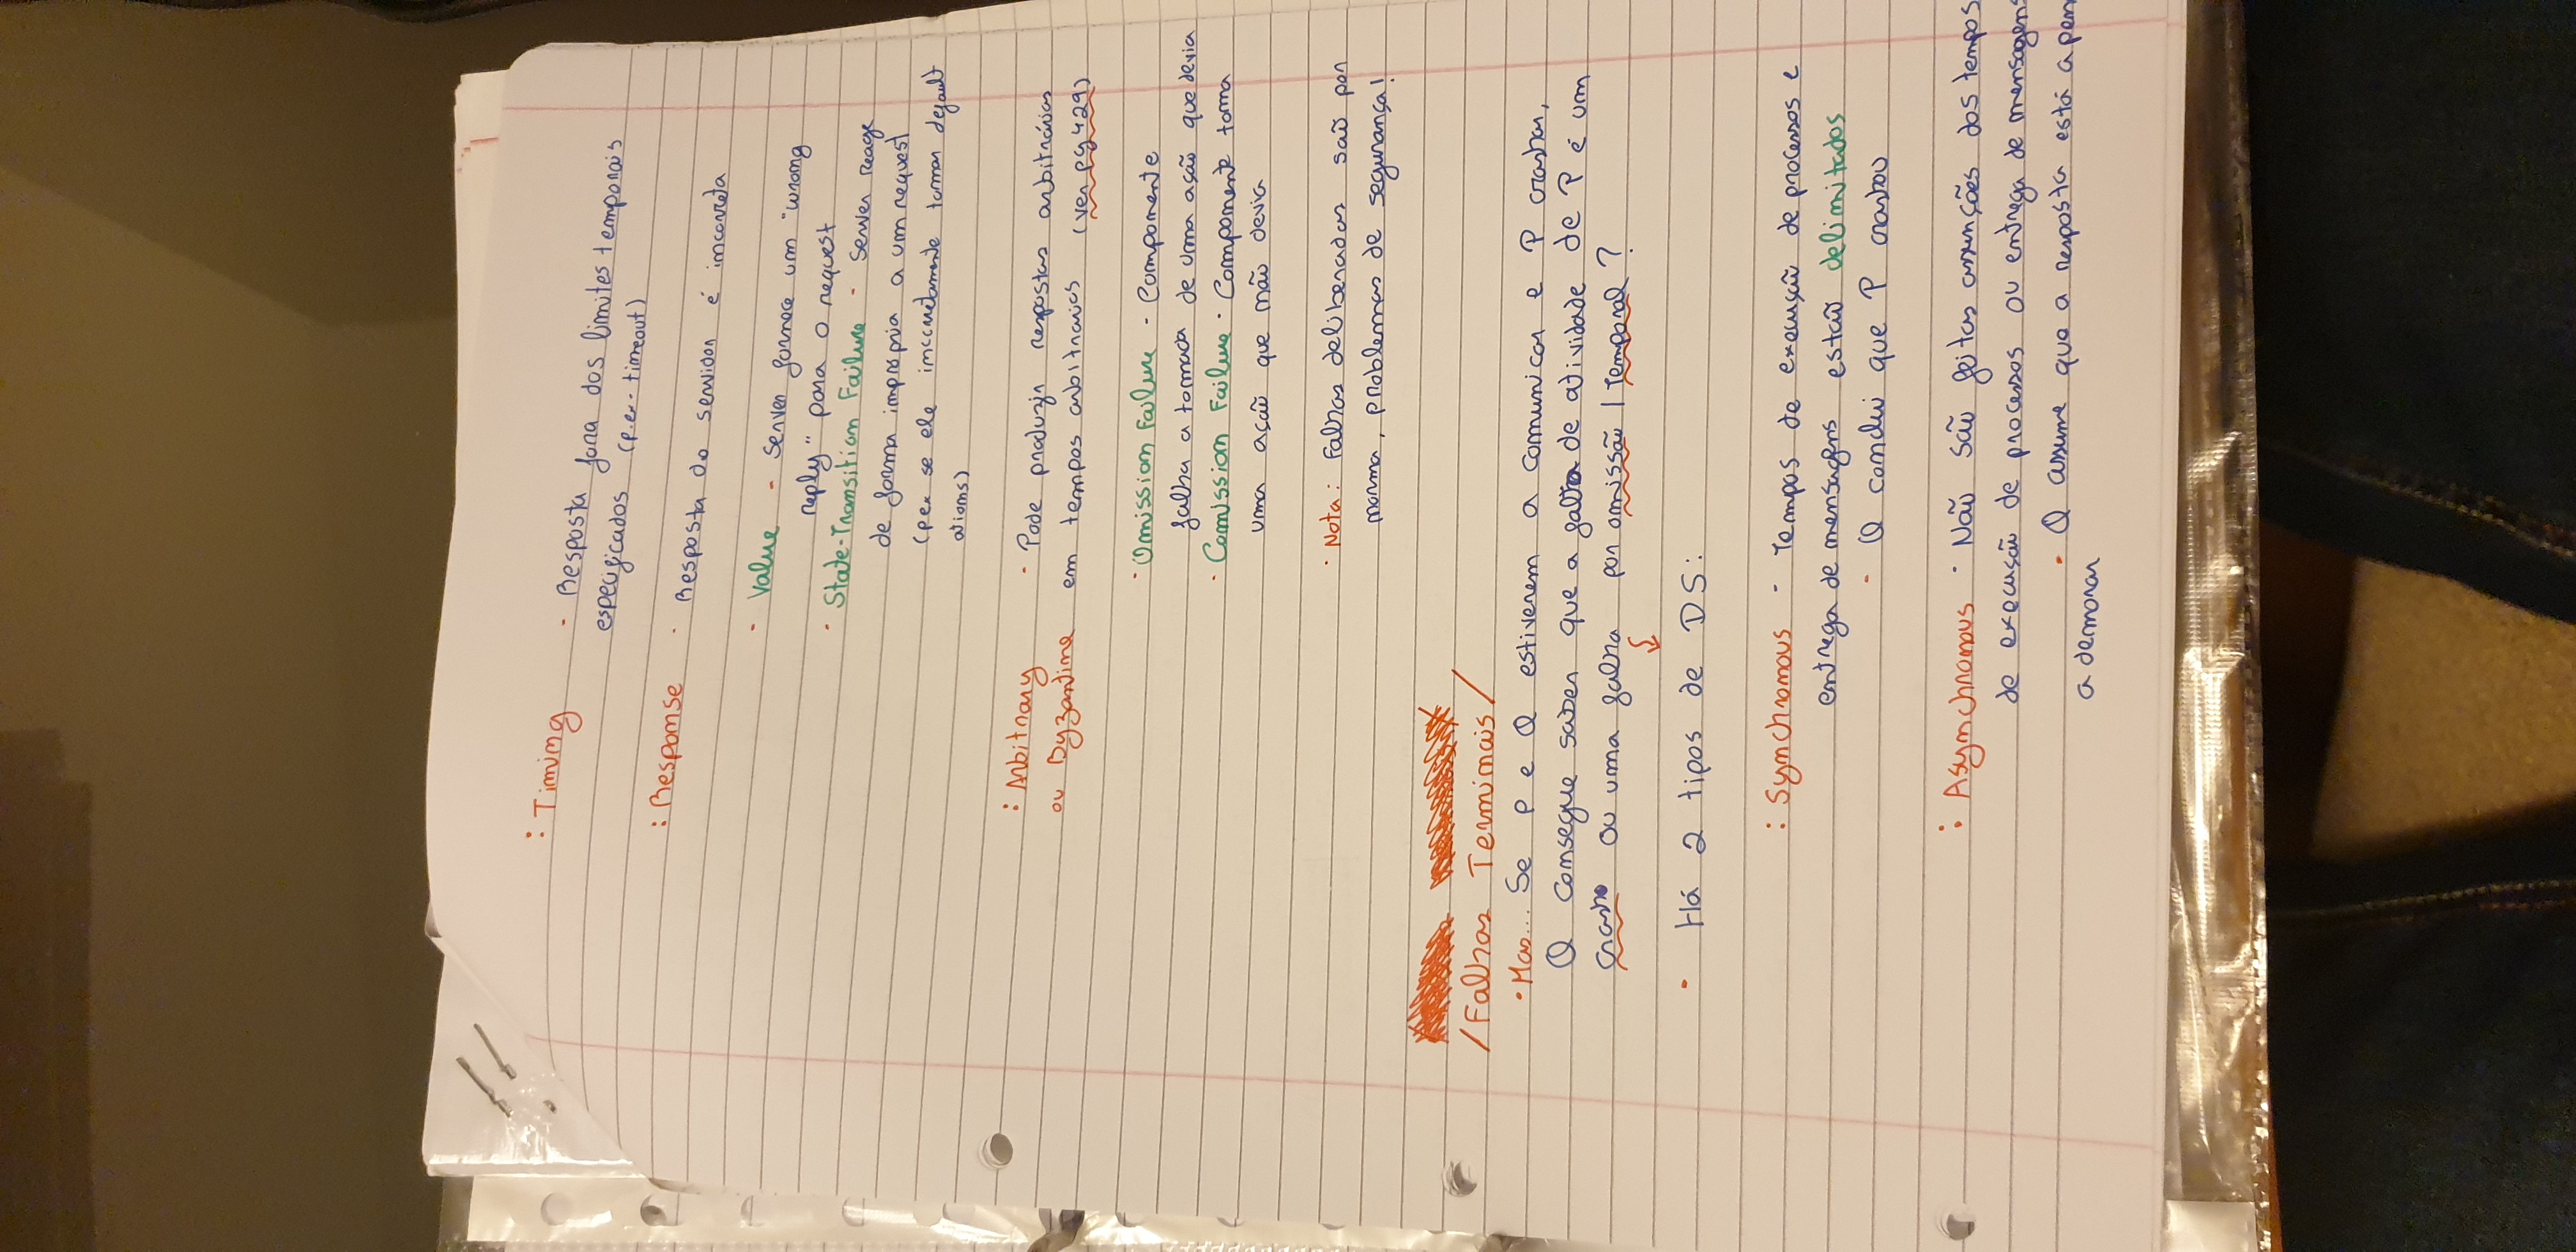 : Timing · Resposta fora dos limites temporais
especificados (p.ex. timeout)
: Response · Resposta do servidor é incorreta
· Value - Server fornece um "wrong
reply" para o request
· State-Transition Failure - Server reage
de forma impropria a um request
(pex se ele incorretamente tomar default
ations)
: Arbitrary · Pode produzir respostas arbitrárias
ou Byzantine em tempos arbitrarios (ver pg 429)
· Omission Failure - Componente
falha a tomada de uma ação que devia
· Comission Failure · Componente toma
uma ação que não devia
· Nota: Falhas deliberadas são por
norma, problemas de segurança!
/Falhas Terminais/
· Mas... Se P e Q estiverem a comunicar e P crashar,
Q consegue saber que a falta de atividade de P é um
crash ou uma falha por omissão / Temporal?
· Há 2 tipos de DS:
: Synchronous - Tempos de execução de processos e
entrega de mensagens estão delimitados
· Q conclui que P crashou
: Asynchronous · Não são feitas assunções dos tempos
de execução de processos ou entrega de mensagens
· Q assume que a resposta está apen
a demorar